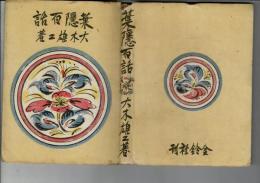 葉隠百話
大木雄二著
葉隠百話 大木雄二著
金鈴社刊